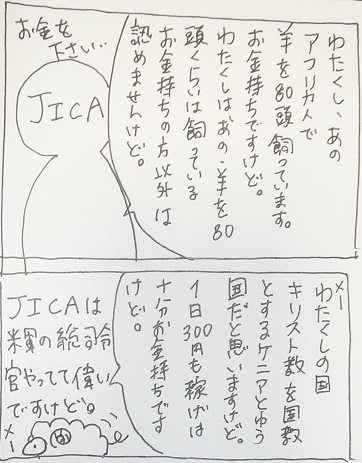 わたくし、あの
アフリカ人で
羊を80頭飼っています。
お金持ちですけど。
わたくしはあの、羊を80
頭くらいは飼っている
お金持ちの方以外は
認めませんけど。
お金を
下さい…
JICA
メー
わたくしの国
キリスト教を国教
とするケニアとゆう
国だと思いますけど。
1日300円も稼げば
十分お金持ちです
けど。
JICAは
軍の総司令
官やってて偉い
ですけど。
メー